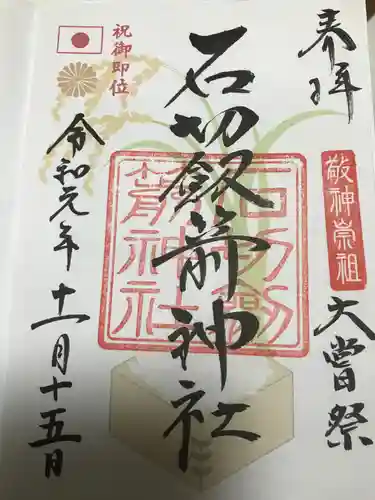 奉拝
敬神崇祖
大嘗祭
石切劔箭神社
石切劔
箭神社
祝御即位
令和元年十一月十五日